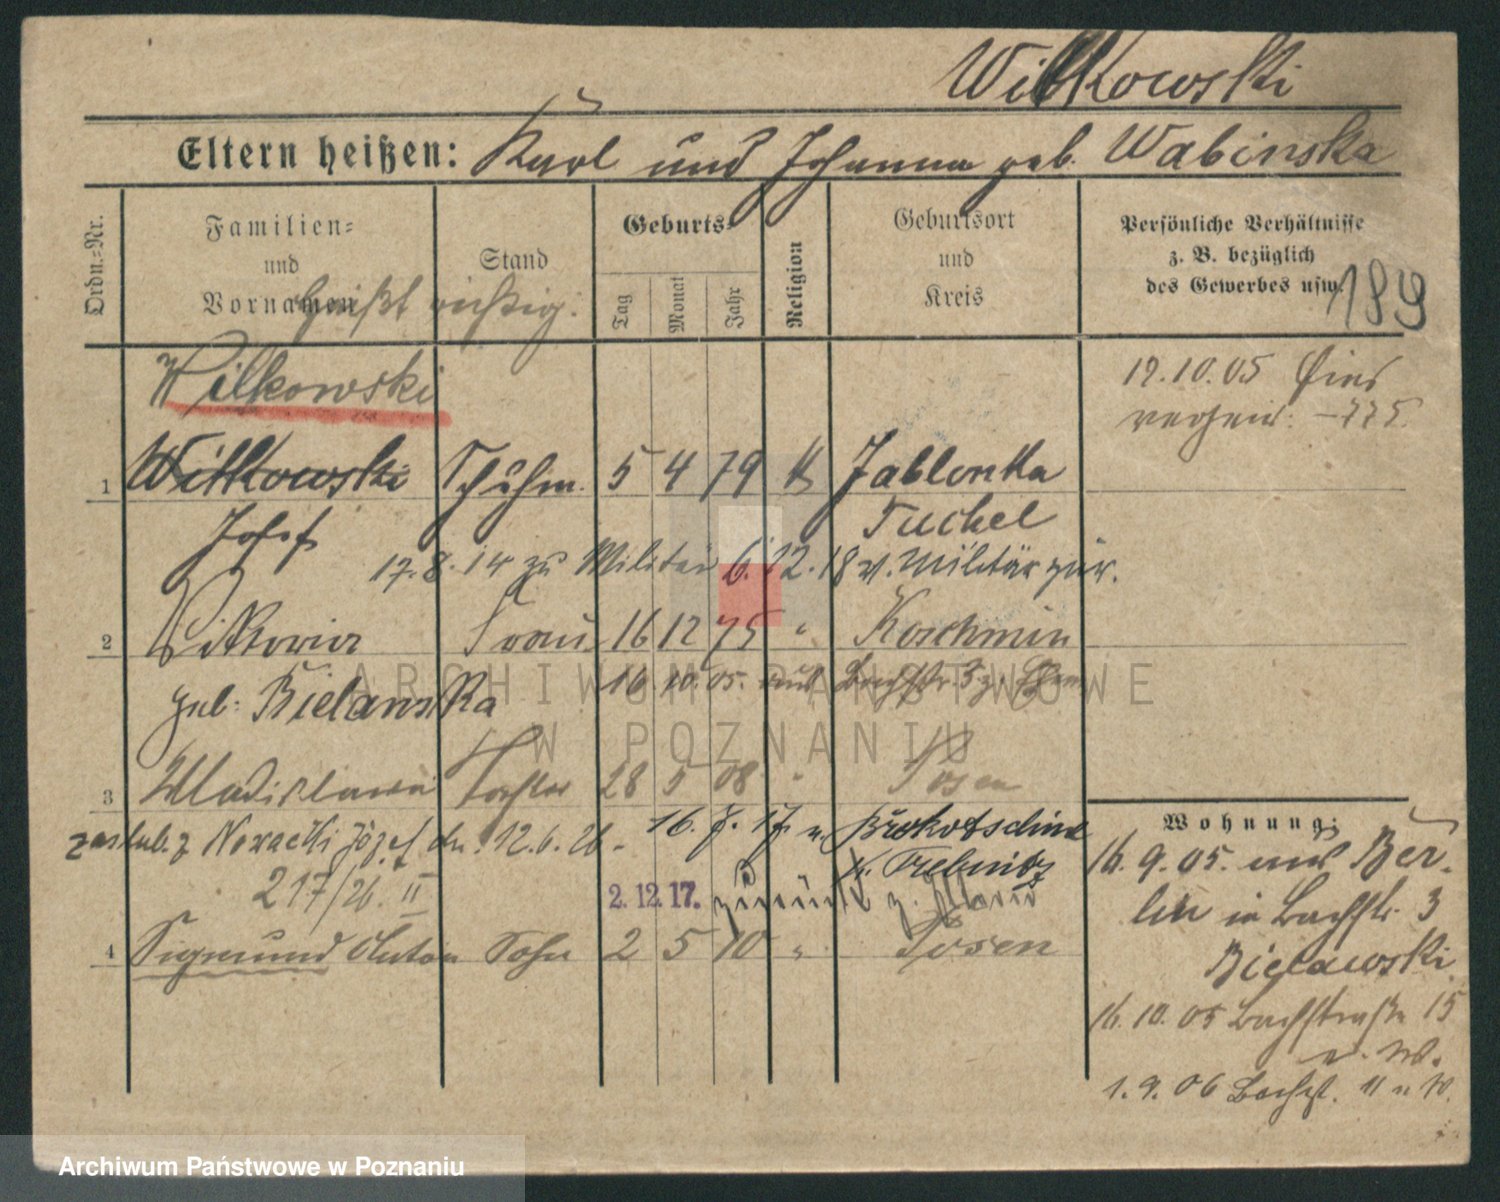 Wilkowski
Eltern heißen: Karl und Johanna geb. Wabinska
Ordn.-Nr.
Familien- und Vornamen
Stand
Geburts-
Tag
Monat
Jahr
Religion
Geburtsort und Kreis
Persönliche Verhältnisse z. B. bezüglich des Gewerbes usw.
189
heißt richtig:
Wilkowski
19.10.05 775
1 Witkowski Schuhm. 5 4 79 K Jablonka
Josef Tuchel
17.8.14 zu Militär 6.12.18 v. Militär zur.
2 Wiktoria Frau 16 12 75 " Koschmin
geb. Bielanska
16.10.05. aus Bachstr. 3
3 Wladislawa Tochter 28 5 08 " Posen
zaślub. z Nowacki Józef dn. 12.6.26.
217/26. II
16. 7. 17. n. Prokotschine
Kr. Trebnitz
2.12.17. zurück
4 Sigmund Anton Sohn 2 5 10 " Posen
Wohnung:
16.9.05. aus Ber-
lin in Bachstr. 3
Bielawski
16.10.05 Bachstraße 15
v. W.
1.9.06 Bachst. 11 v. W.
ARCHIWUM PAŃSTWOWE
W POZNANIU
Archiwum Państwowe w Poznaniu